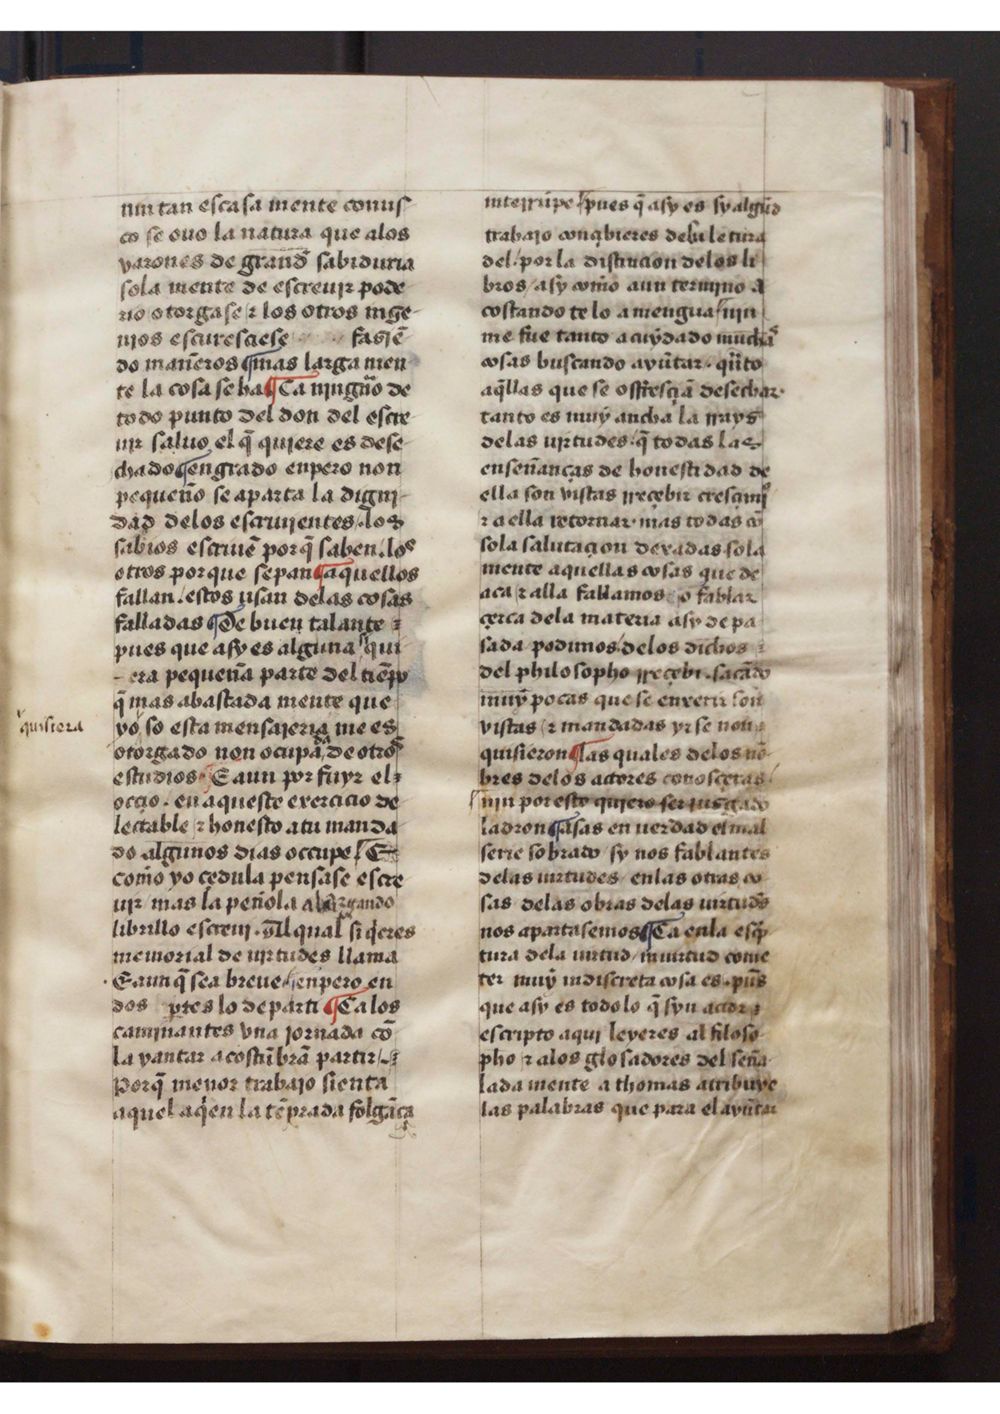 nin tan escasa mente conus
co se ouo la natura que alos
varones de grand̃ sabiduria
sola mente de escreuir pode
rio otorgase ⁊ los otros inge
nios escuresciese fasiẽ
do mañeros ¶ mas larga men
te la cosa se ha ¶ Ca ningũo de
todo punto del don del escre
uir saluo el q̃ quiere es dese
chado ¶ en grado enpero non
pequeño se aparta la digni
dad delos escriuientes. los
sabios escriuẽ porq̃ saben. los
otros por que sepan ¶ aquellos
fallan. estos usan delas cosas
falladas ¶ De buen talante ⁊
pues que asy es alguna qui
era pequeña parte del tiẽpo
q̃ mas abastada mente que
quisiera
yo so esta mensajeria me es
otorgado non ocupada de otros
estudios. E aun por fuyr el
ocçio. en aqueste exercicio de
lectable ⁊ honesto a tu manda
do algunos dias occupe / E
como yo çedula pensase escre
uir mas la peñola
librillo escreui. El qual si q̃eres
memorial de uirtudes llama
E aun q̃ sea breue / enpero en
dos p̃tes lo departi ¶ Ca los
caminantes vna jornada cõ
la yantar acostũbrã partir /
porq̃ menor trabajo sienta
aquel aq̃en la tẽprada folgãça
interrũpe / pues q̃ asy es sy algũd
trabajo conçibieres desu letura
del. por la distincion delos li
bros / asy com̃o a un termino a
costando telo amengua / nin
me fue tanto a cuydado muchã
cosas buscando ayũtar. q̃ñto
aq̃llas que se ofresçiã desechar.
tanto es muy ancha la rrays
delas uirtudes. q̃ todas las
enseñanças de honestidad de
ella son vistas rreçebir cresçimi
⁊ a ella retornar. mas todas cõ
sola salutaçion dexadas sola
mente aquellas cosas que de
aca ⁊ alla fallamos o fablar
çerca dela materia asy de pa
sada podimos / delos dichos
del philosopho rreçebi. sacãdo
muỹ pocas que se enxerir son
vistas / ⁊ mandadas yr se non
quisieron ¶ las quales delos nõ
bres delos actores conosceras /
nin por esto quiero ser jusgado
ladron ¶ asas en uerdad el mal
serie sobrado / sy nos fablantes
delas uirtudes enlas otras co
sas delas obras delas uirtudes
nos apartasemos ¶ Ca enla escp̃
tura dela uirtud / inuirtud come
ter muỹ indiscreta cosa es. pũs
que asy es todo lo q̃ syn actor
escripto aqui leyeres al filoso
pho ⁊ alos glosadores del seña
lada mente a thomas atribuye
las palabras que para el ayũtar